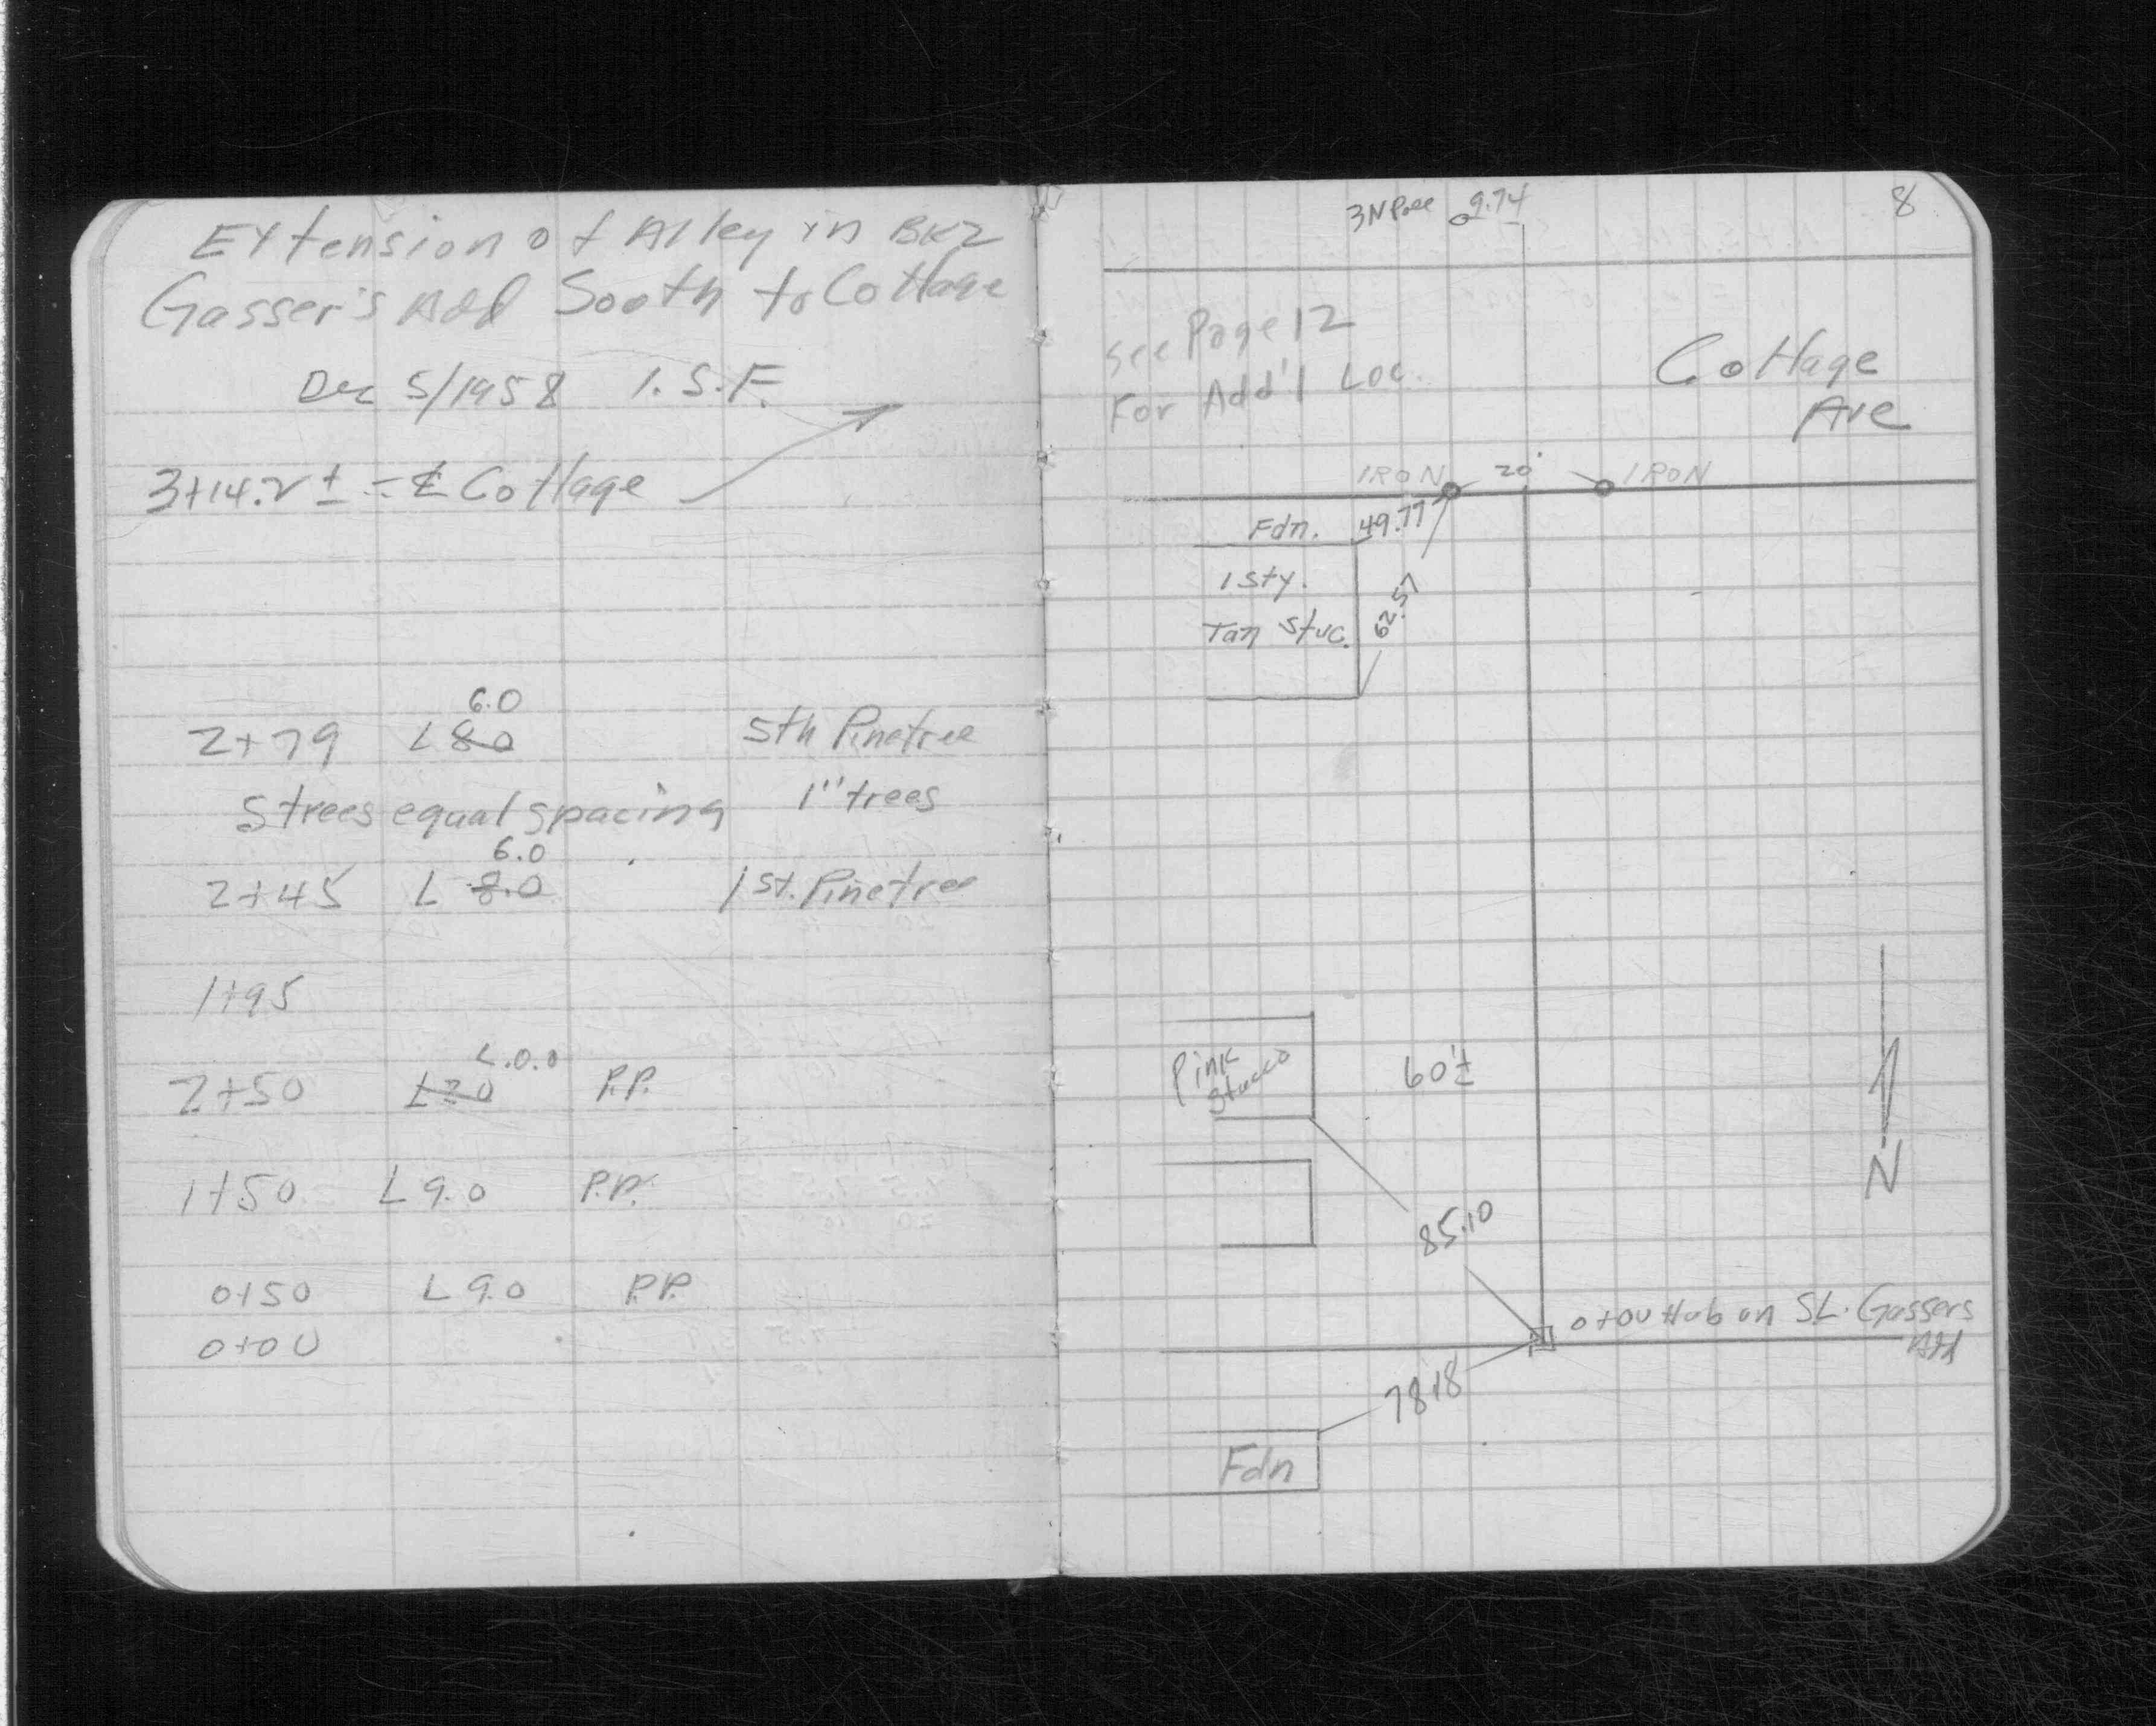 Extension of Alley in BK2
Gasser's Add South to Cottage
Dec 5/1958 I.S.F.
3+14.2 ± = ℄ Cottage
6.0
2+79 L 80 5th Pinetree
5 trees equal spacing 1" trees
6.0
2+45 L 8.0 1st. Pinetree
1+95
L.0.0
2+50 P.P.
1+50 L 9.0 P.P.
0+50 L 9.0 P.P.
0+00
3N Pole 9.74
8
See Page 12
For Add'l Loc.
Cottage
Ave
IRON 20' IRON
Fdn. 49.77
1 sty.
Tan Stuc. 62.57
Pink
Stucco
60'±
N
85.10
0+00 Hub on SL. Gassers
Add
78.18
Fdn